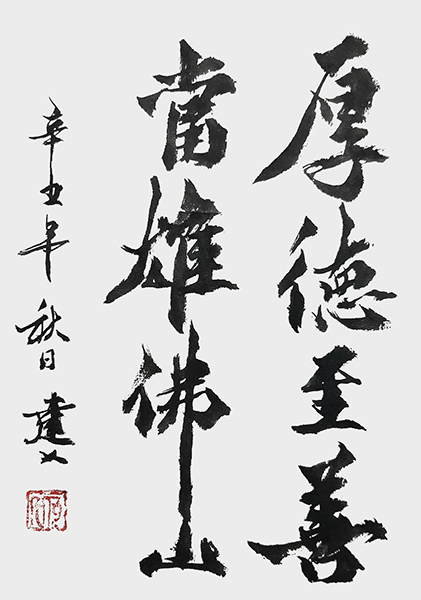 厚德至善
當雄佛山
辛丑年秋日建